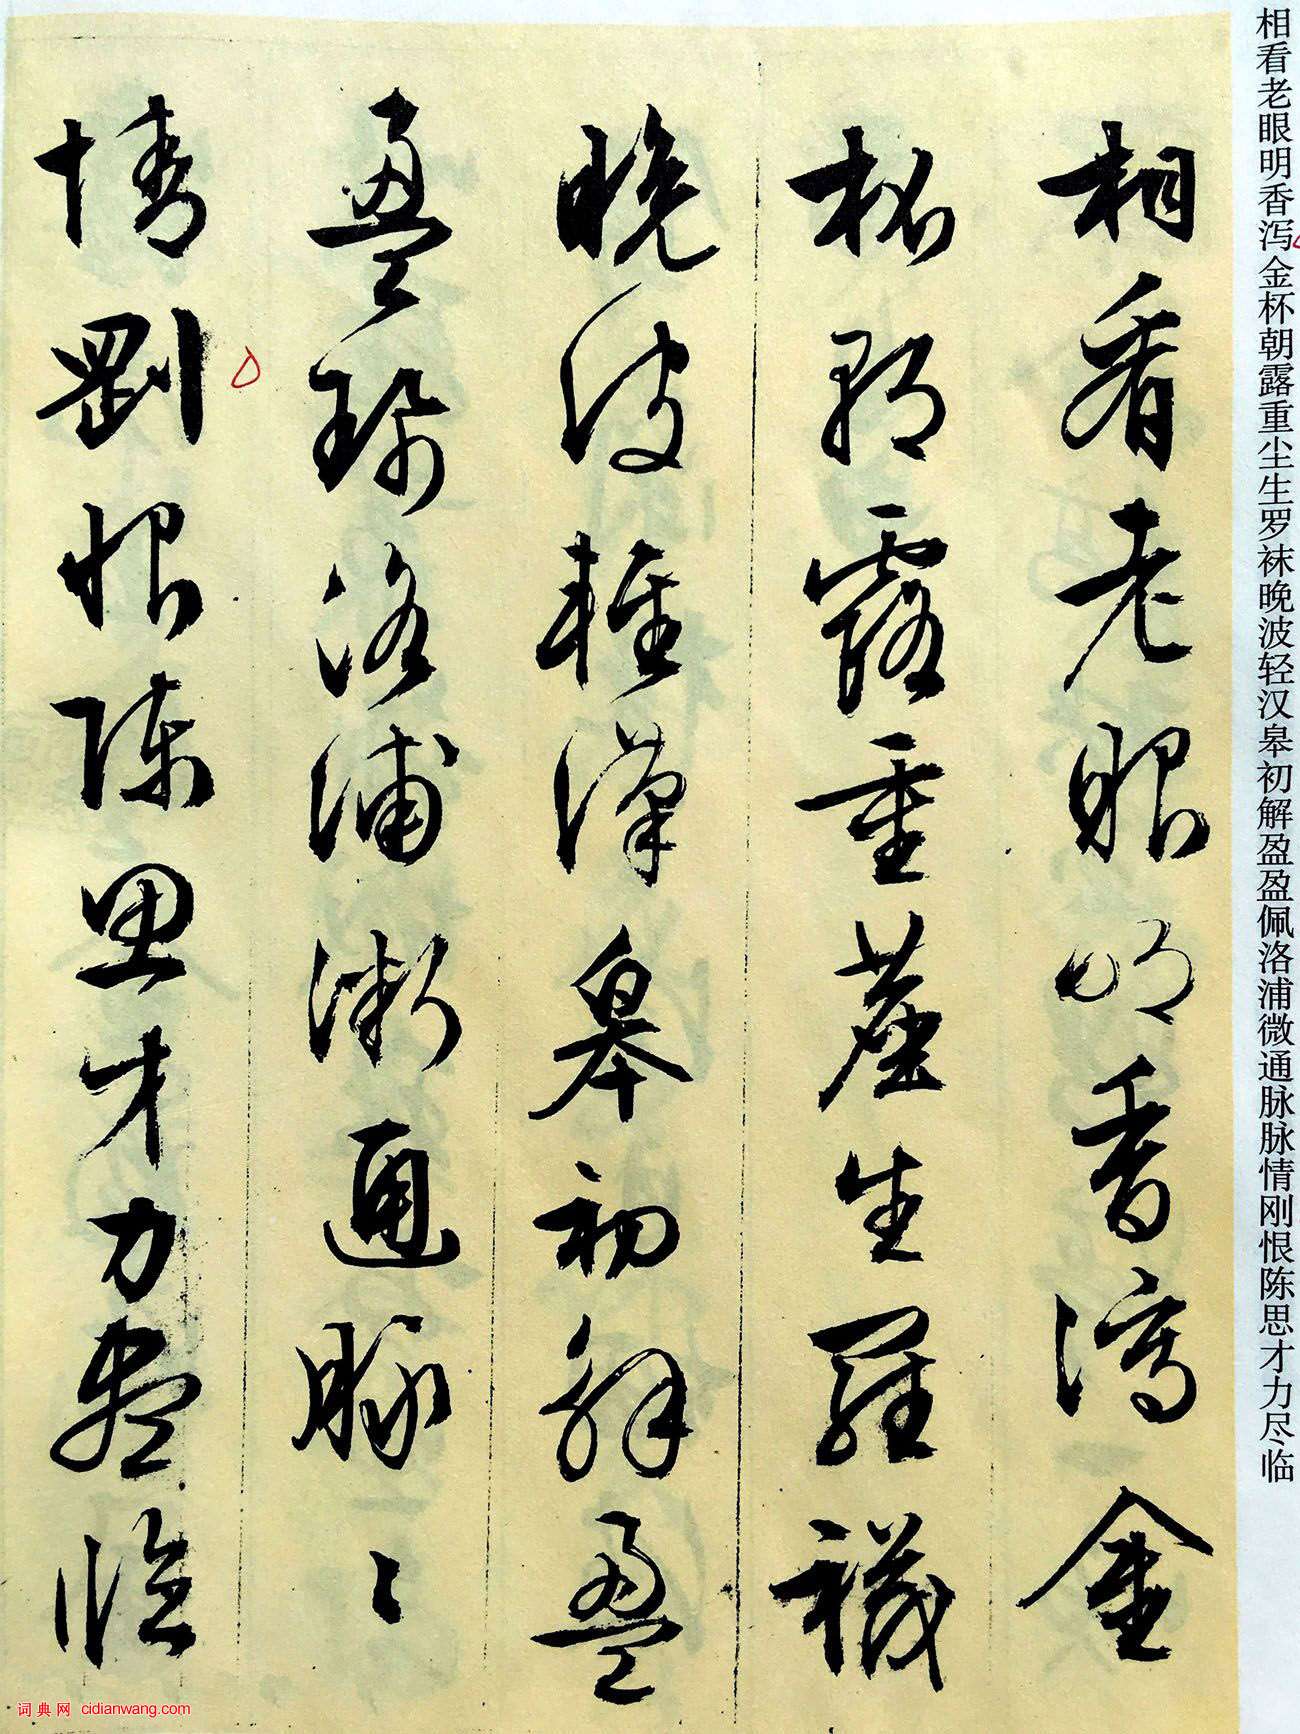 相看老眼明香泻金杯朝露重尘生罗袜晚波轻汉皋初解盈盈佩洛浦微通脉脉情刚恨陈思才力尽临
相看老眼明香瀉金
杯朝露重塵生羅襪
晚波輕漢皋初解盈
盈珮洛浦微通脈〻
情剛恨陳思才力盡臨
词典网 cidianwang.com